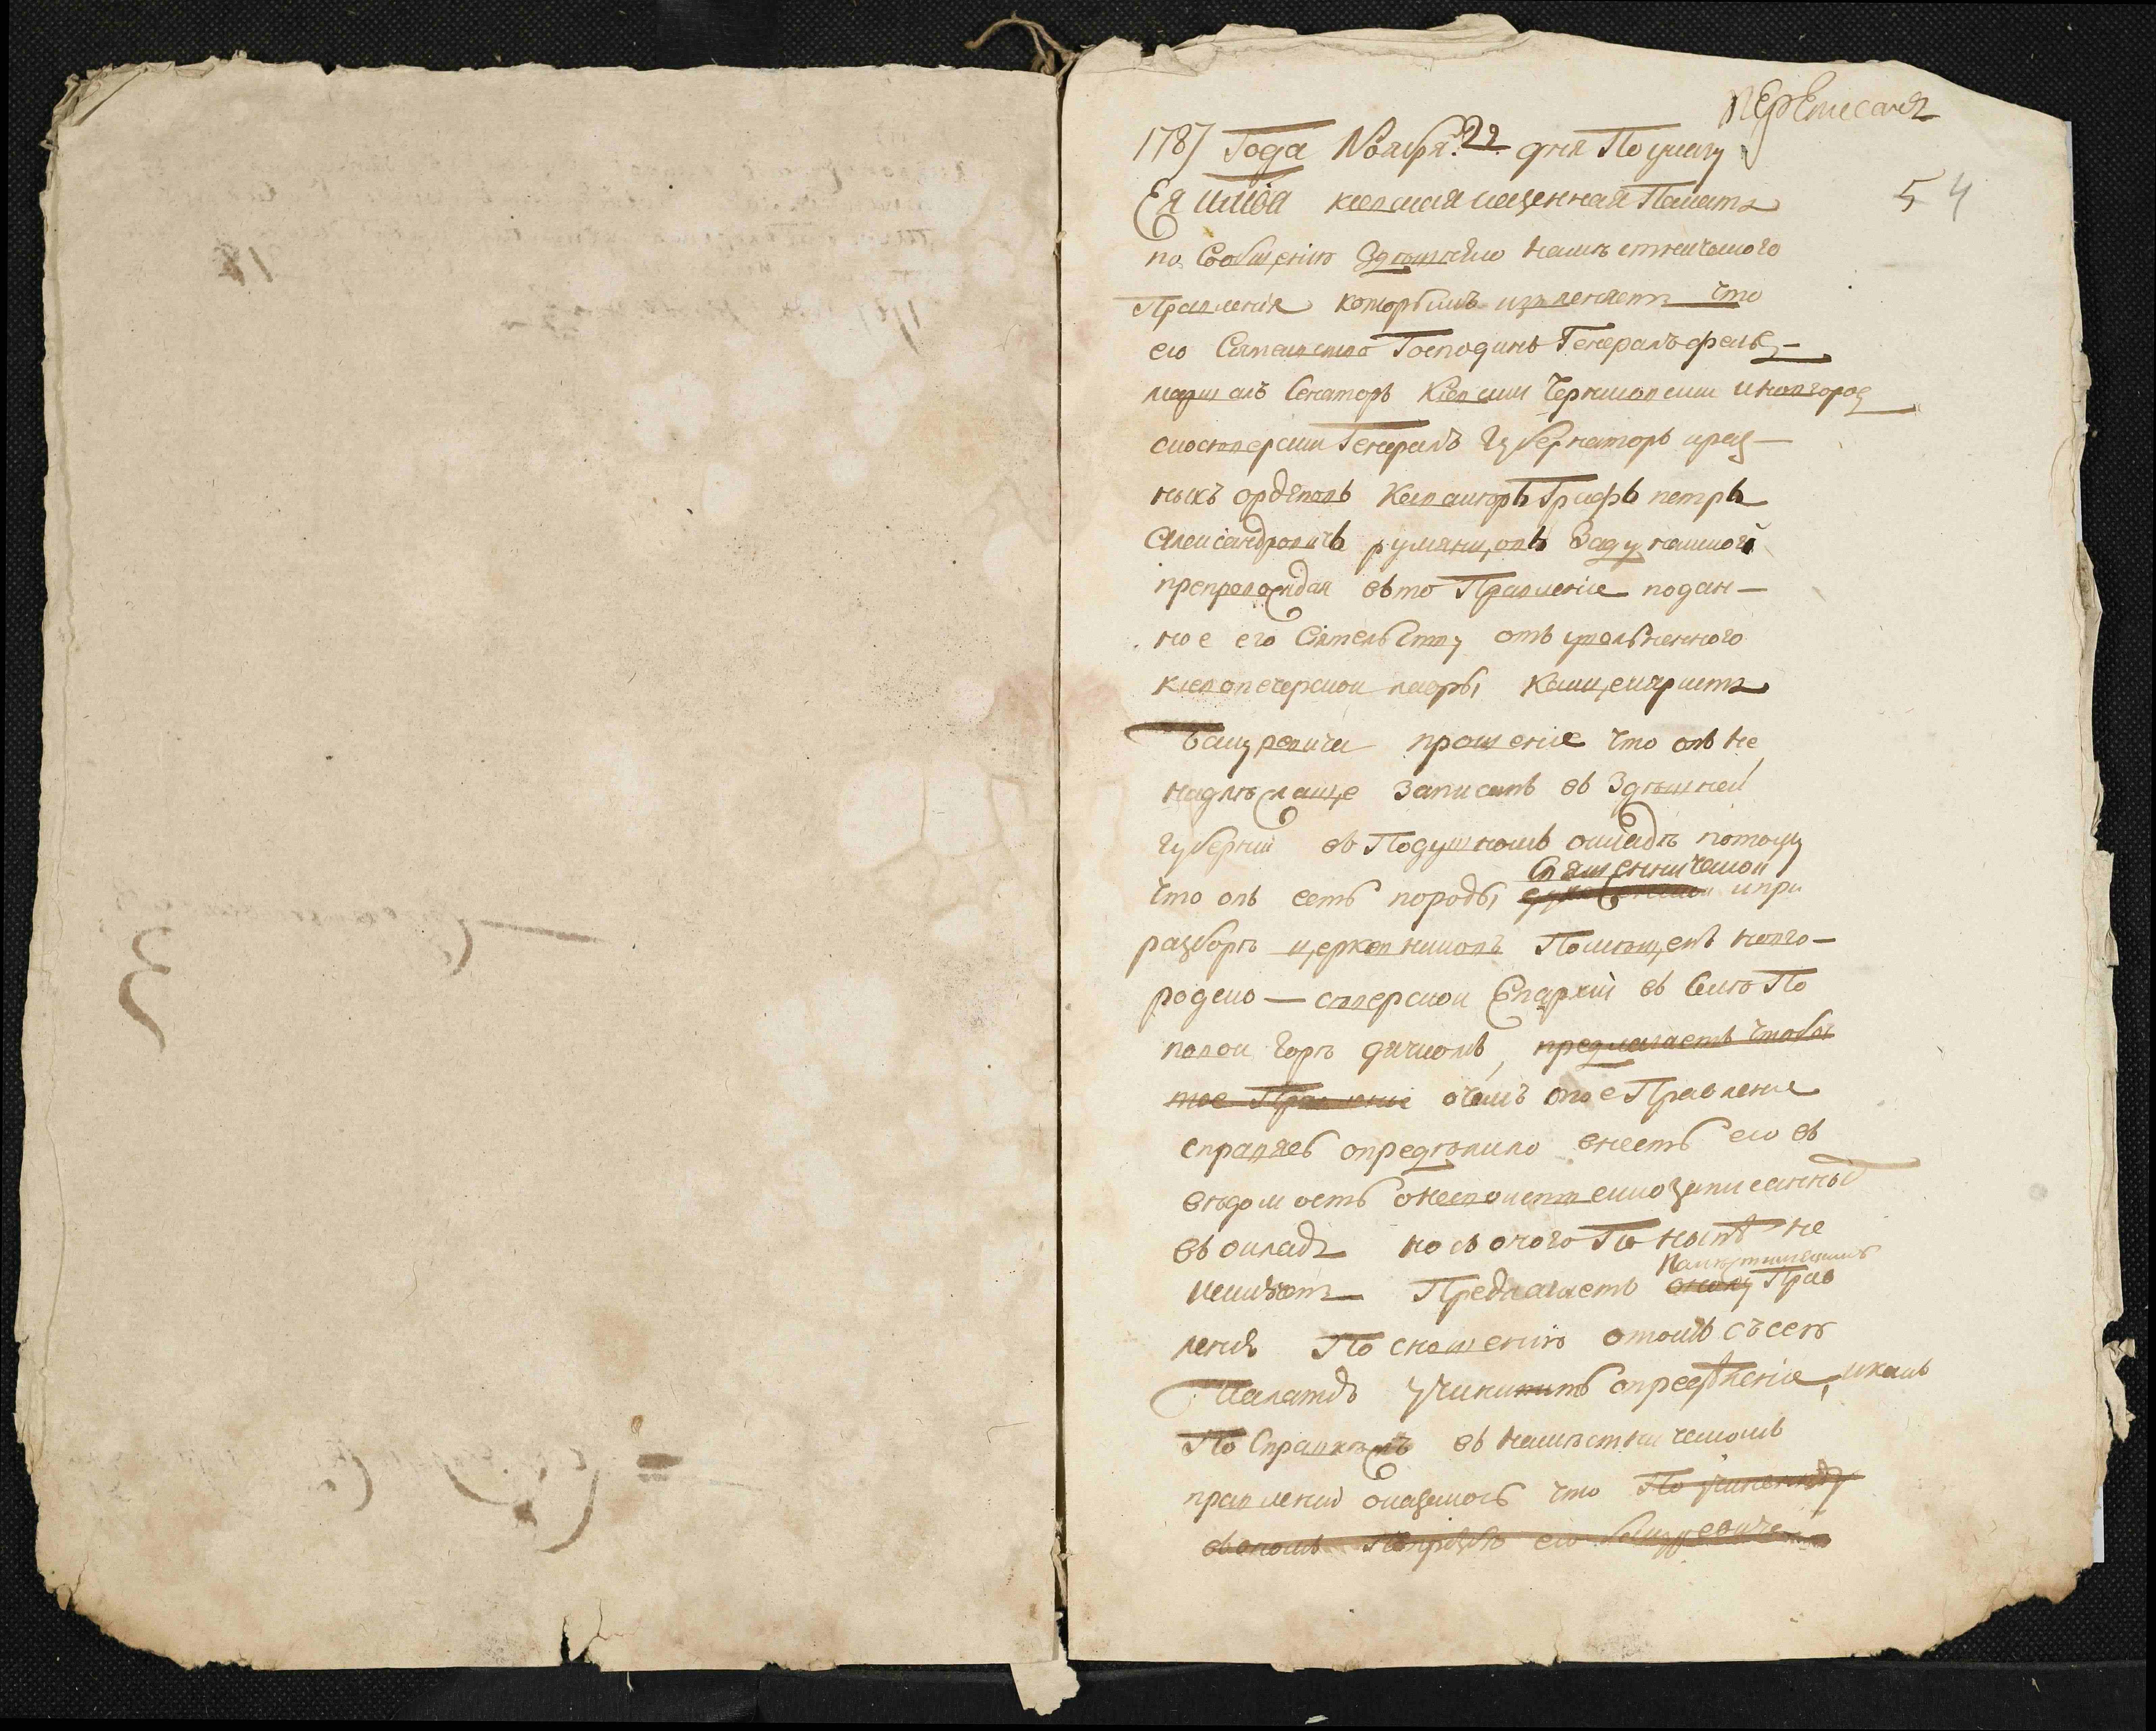 переписаня
1787 Года Ноября 22 дня По указу
54
Ея имва киевская казенная Палата
по Сообщению Здешнего наместнического
Правления которымъ изъясняетъ что
его Сиятелство Господинъ Генералъ фелд-
маршалъ Сенаторъ Киевский Черниговский и новгород
скосиверский Генералъ Губернаторъ и раз-
ныхъ орденовъ Кавалиоръ Графъ петръ
Александровичъ румянцовъ Задунайской
препровождая въ то Правление подан-
ное его Сиятелству отъ уволненного
киевопечерской лавры канцеляриста
прошение что онъ не
надлежаще Записанъ въ Здешней
Губернии въ Подушномъ окладе потому
Священнической
что онъ есть породы и при
разборе церковниковъ Помещенъ новго-
родско-северской Епархии въ Село По
повой Горе дячкомъ, предлагаетъ чтобы
тое Правление о чемъ оное Правление
справясь определило внесть его въ
ведомость о неспойственно записанныхъ
въ окладъ но съ оного По ныне не
Наместническомъ
исключонъ Предлагаетъ оному Прав
лению По сношению о томъ съ сею
Палатою учинить определение, и какъ
По Справкамъ въ наместническомъ
правлении оказалось что По учиненному
въ ономъ его